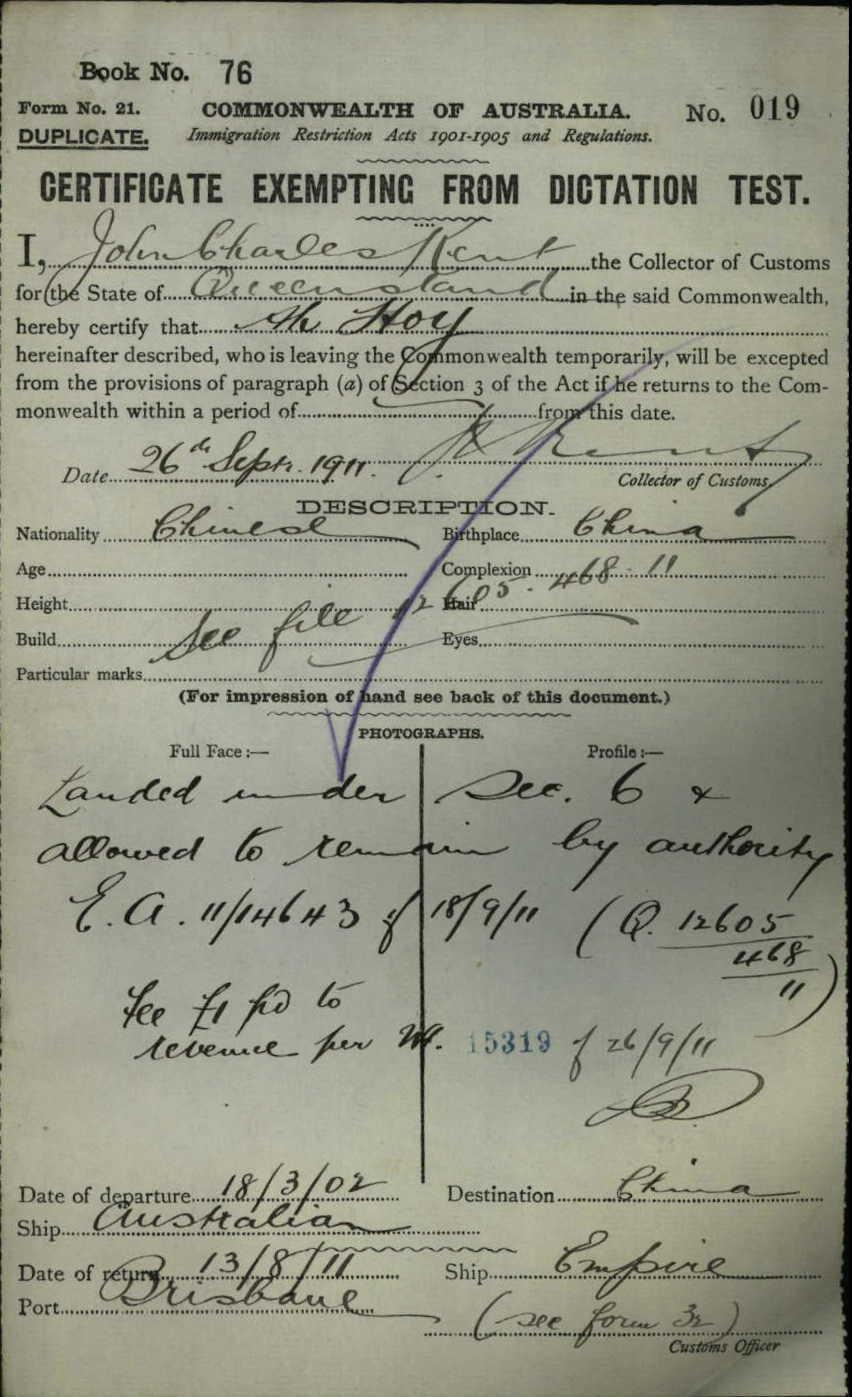 Book No. 76
Form No. 21. COMMONWEALTH OF AUSTRALIA. No. 019
DUPLICATE. Immigration Restriction Acts 1901-1905 and Regulations.
CERTIFICATE EXEMPTING FROM DICTATION TEST.
I, John Charles Kent the Collector of Customs
for the State of Queensland in the said Commonwealth,
hereby certify that Ah Hoy
hereinafter described, who is leaving the Commonwealth temporarily, will be excepted
from the provisions of paragraph (a) of Section 3 of the Act if he returns to the Com-
monwealth within a period of from this date.
Date 26th Sept. 1911. Kent
Collector of Customs
DESCRIPTION.
Nationality Chinese Birthplace China
Age Complexion
Height Hair
See file 12605 · 468 · 11
Build Eyes
Particular marks
(For impression of hand see back of this document.)
PHOTOGRAPHS.
Full Face:— Profile:—
Landed under Sec. 6 &
allowed to remain by authority
E.A. 11/14643 of 18/9/11 (Q. 12605
468
11)
Fee £1 pd to
revenue per 15319 of 26/9/11
Date of departure 18/3/02 Destination China
Ship Australian
Date of return 13/8/11 Ship Empire
Port Brisbane
(see form 32)
Customs Officer